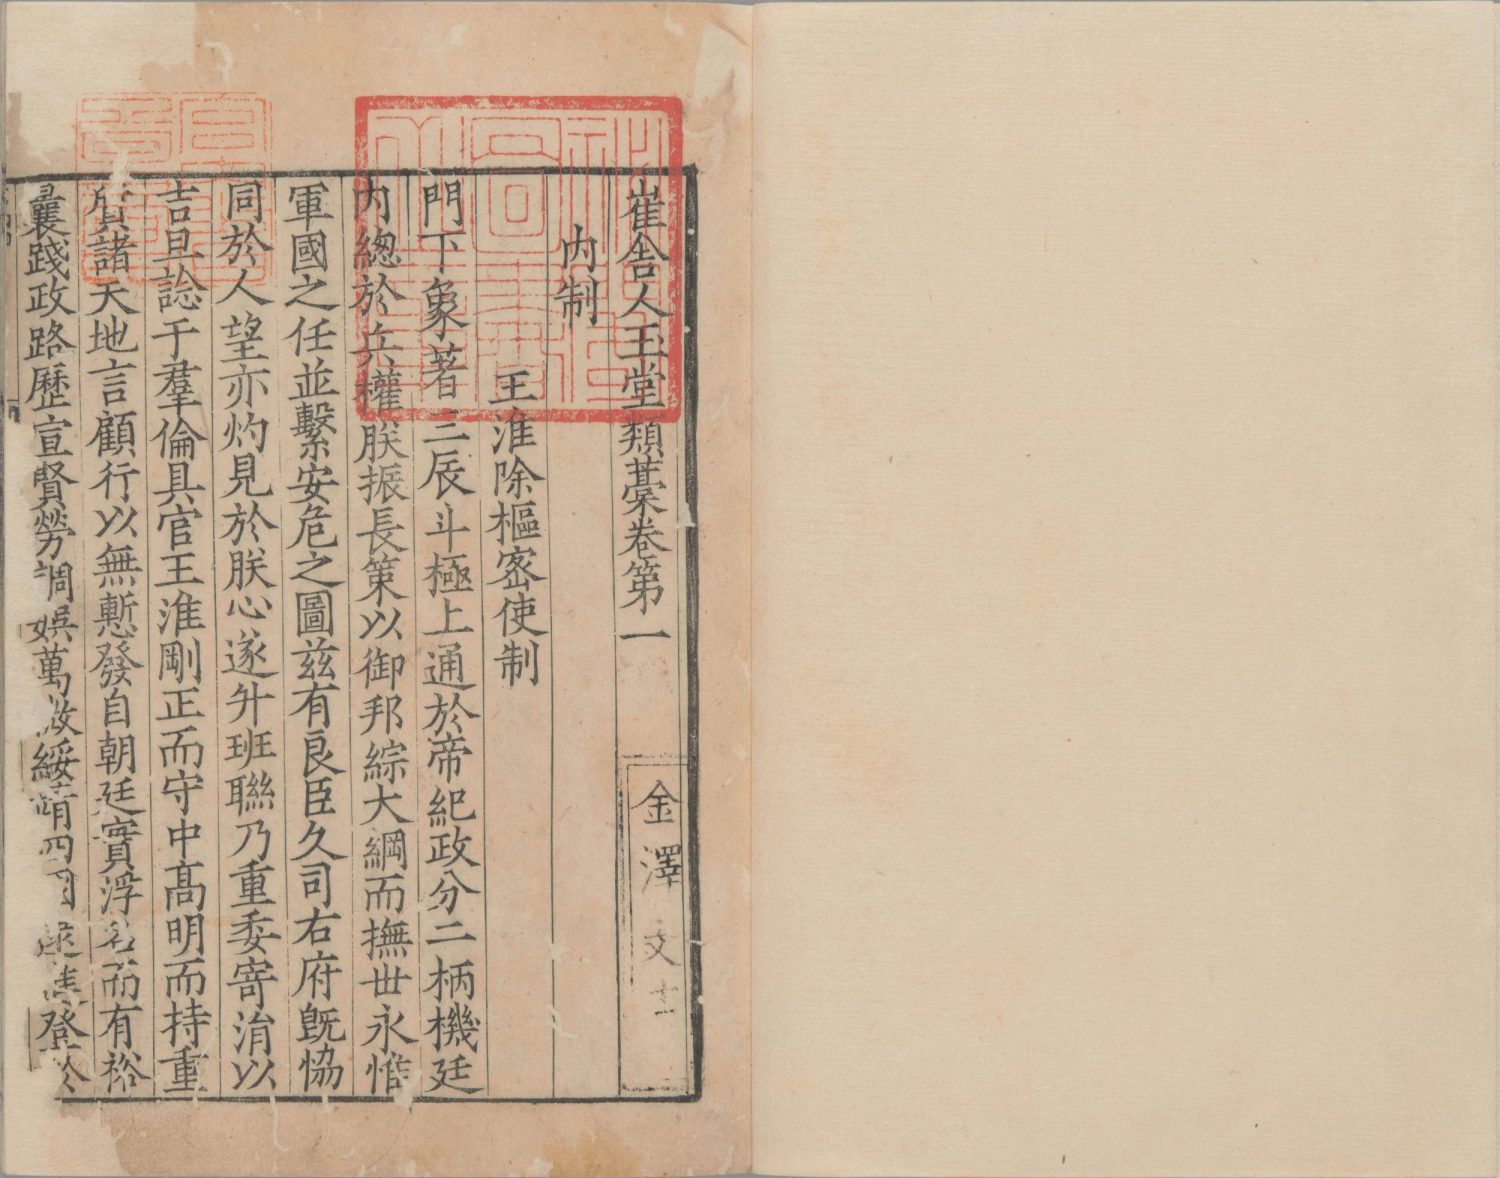 崔舎人玉堂類藁卷第一
金澤文
内制
王淮除樞宻使制
門下象著三辰斗極上通於帝紀政分二柄機廷
内緫於兵權朕振長策以御邦綜大綱而撫世永惟
軍國之任並繫安危之圖兹有良臣久司右府旣恊
同於人望亦灼見於朕心遂升班聯乃重委寄涓以
吉旦諗于羣倫具官王淮剛正而守中髙明而持重
質諸天地言顧行以無慙發自朝廷實浮名而有裕
曩踐政路歷宣賢勞調娯萬微綏靖四國逮登於